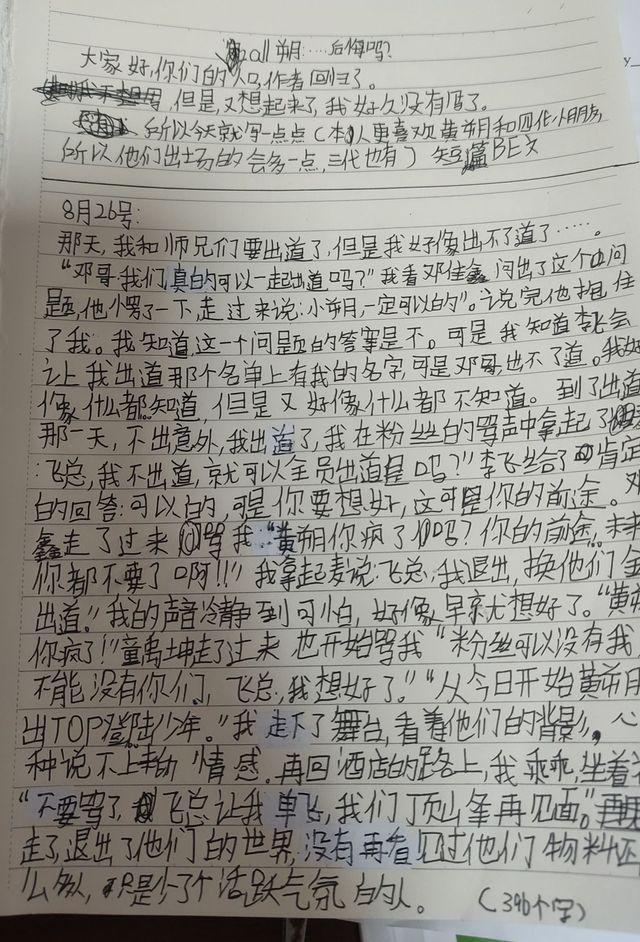 all朔……后悔吗?
大家好,你们的人,作者回归了。
但是,又想起来了,我好久没有写了。
所以今天就写一点点(本人更喜欢黄朔和四代小朋友
所以他们出场的会多一点,三代也有)短篇BE文
8月26号:
那天,我和师兄们要出道了,但是我好像出不了道了……。
“邓哥我们真的可以一起出道吗?”我看邓佳鑫问出了这个问
题,他愣了一下,走过来说:小朔,一定可以的”。说完他抱住
了我。我知道,这一个问题的答案是不。可是我知道李飞会
让我出道那个名单上有我的名字,可是邓哥出不了道。我好
像什么都知道,但是又好像什么都不知道。到了出道
那一天,不出意外,我出道了,我在粉丝的骂声中拿起了
:飞总,我不出道,就可以全员出道是吗?”李飞给了肯定
的回答:可以的,可是你要想好,这可是你的前途。邓
鑫走了过来骂我“黄朔你疯了吗?你的前途,未来
你都不要了啊!!”我拿起麦说:飞总,我退出,换他们全
出道。”我的声音冷静到可怕,好像早就想好了。“黄朔
你疯了!”童禹坤走了过来也开始骂我“粉丝可以没有我,
不能没有你们,飞总,我想好了。”“从今日开始黄朔
出TOP登陆少年。”我走下了舞台,看着他们的背影,心
种说不上来的情感。再回酒店的路上,我乖乖,坐着
“不要骂了,飞总让我单飞,我们顶峰再见面。”
走了,退出了他们的世界,没有再看见过他们物料还
么多人,只是少了个活跃气氛的人。
(396个字)